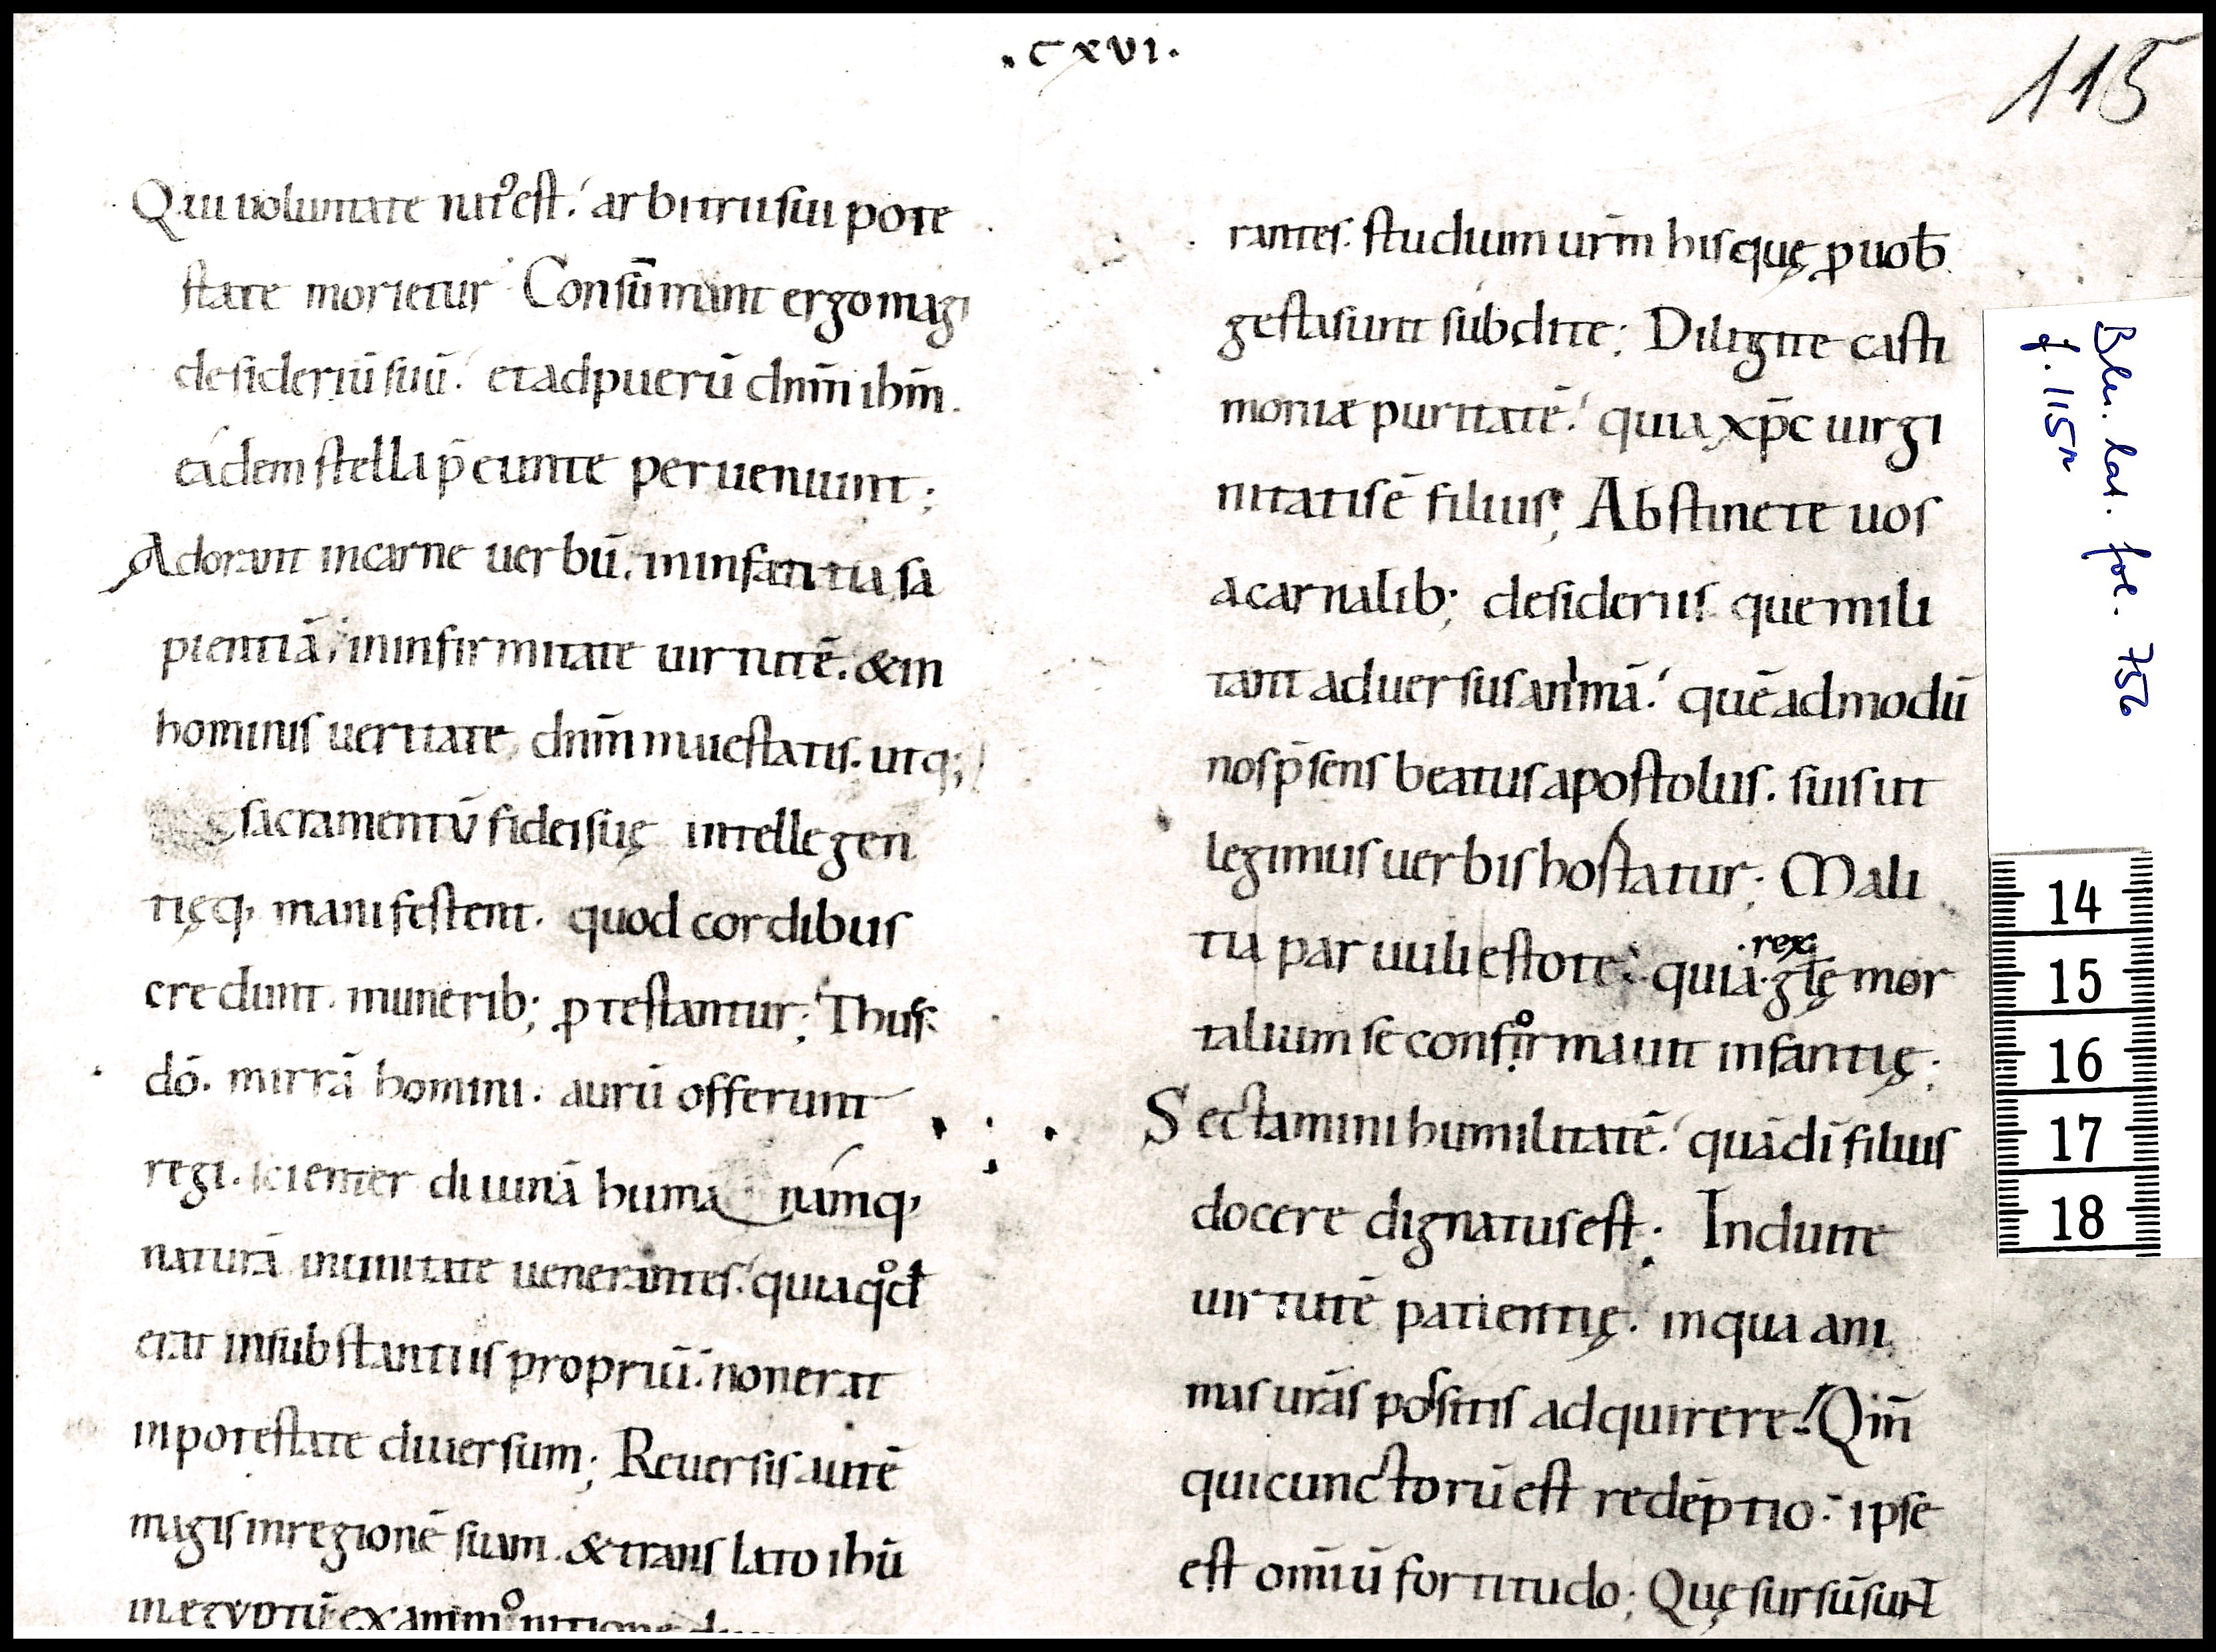 .CXVI.
115
Qui uolumtate nat᾽ est. arbitrii sui pote
state morietur. Consūmant ergo magi
desideriū suū. et ad puerū dnm̄ ihm̄.
eádem stella p̄eunte perueniunt;
Adorant in carne uerbū. in infantia sa
pientiā. in infirmitate uirtutē. & in
hominis ueritate dnm̄ maiestatis. utq;
sacramentū fidei suę intellegen
tięq, manifestent. quod cordibus
credunt. munerib; ꝓtestantur; Thus
dō. mirrā homini. aurū offerunt
regi. scienter diuinā huma námq,
naturā in unitate uenerantes. quia qd̊
erat in substantiis propriū. non erat
in potestate diuersum; Reuersis autē
magis in regionē suam. & translato ihū
in ægyptū ex ammonitione
rantes. studium urm̄ his quę ꝓ uob̄
gesta sunt subdite; Diligite casti
moniæ puritatē. quia xp̄c uirgi
nitatis ē filius; Abstinete uos
a carnalib; desideriis que mili
tant aduersus animā. quē ad modū
nos p̄sens beatus apostolus. suis ut
legimus uerbis hostatur; Mali
tia paruuli estote. quia .rex. gl̄ę mor
talium se conformauit infantię;
Sectamini humilitatē. quā dī filius
docere dignatus est; Induite
uirtutē patientię. in qua ani
mas urās possitis adquirere. Qm̄
qui cunctorū est redēptio. ipse
est omīū fortitudo; Quę sursū sunt
Blu. lat. fol. 756
f. 115r
14
15
16
17
18